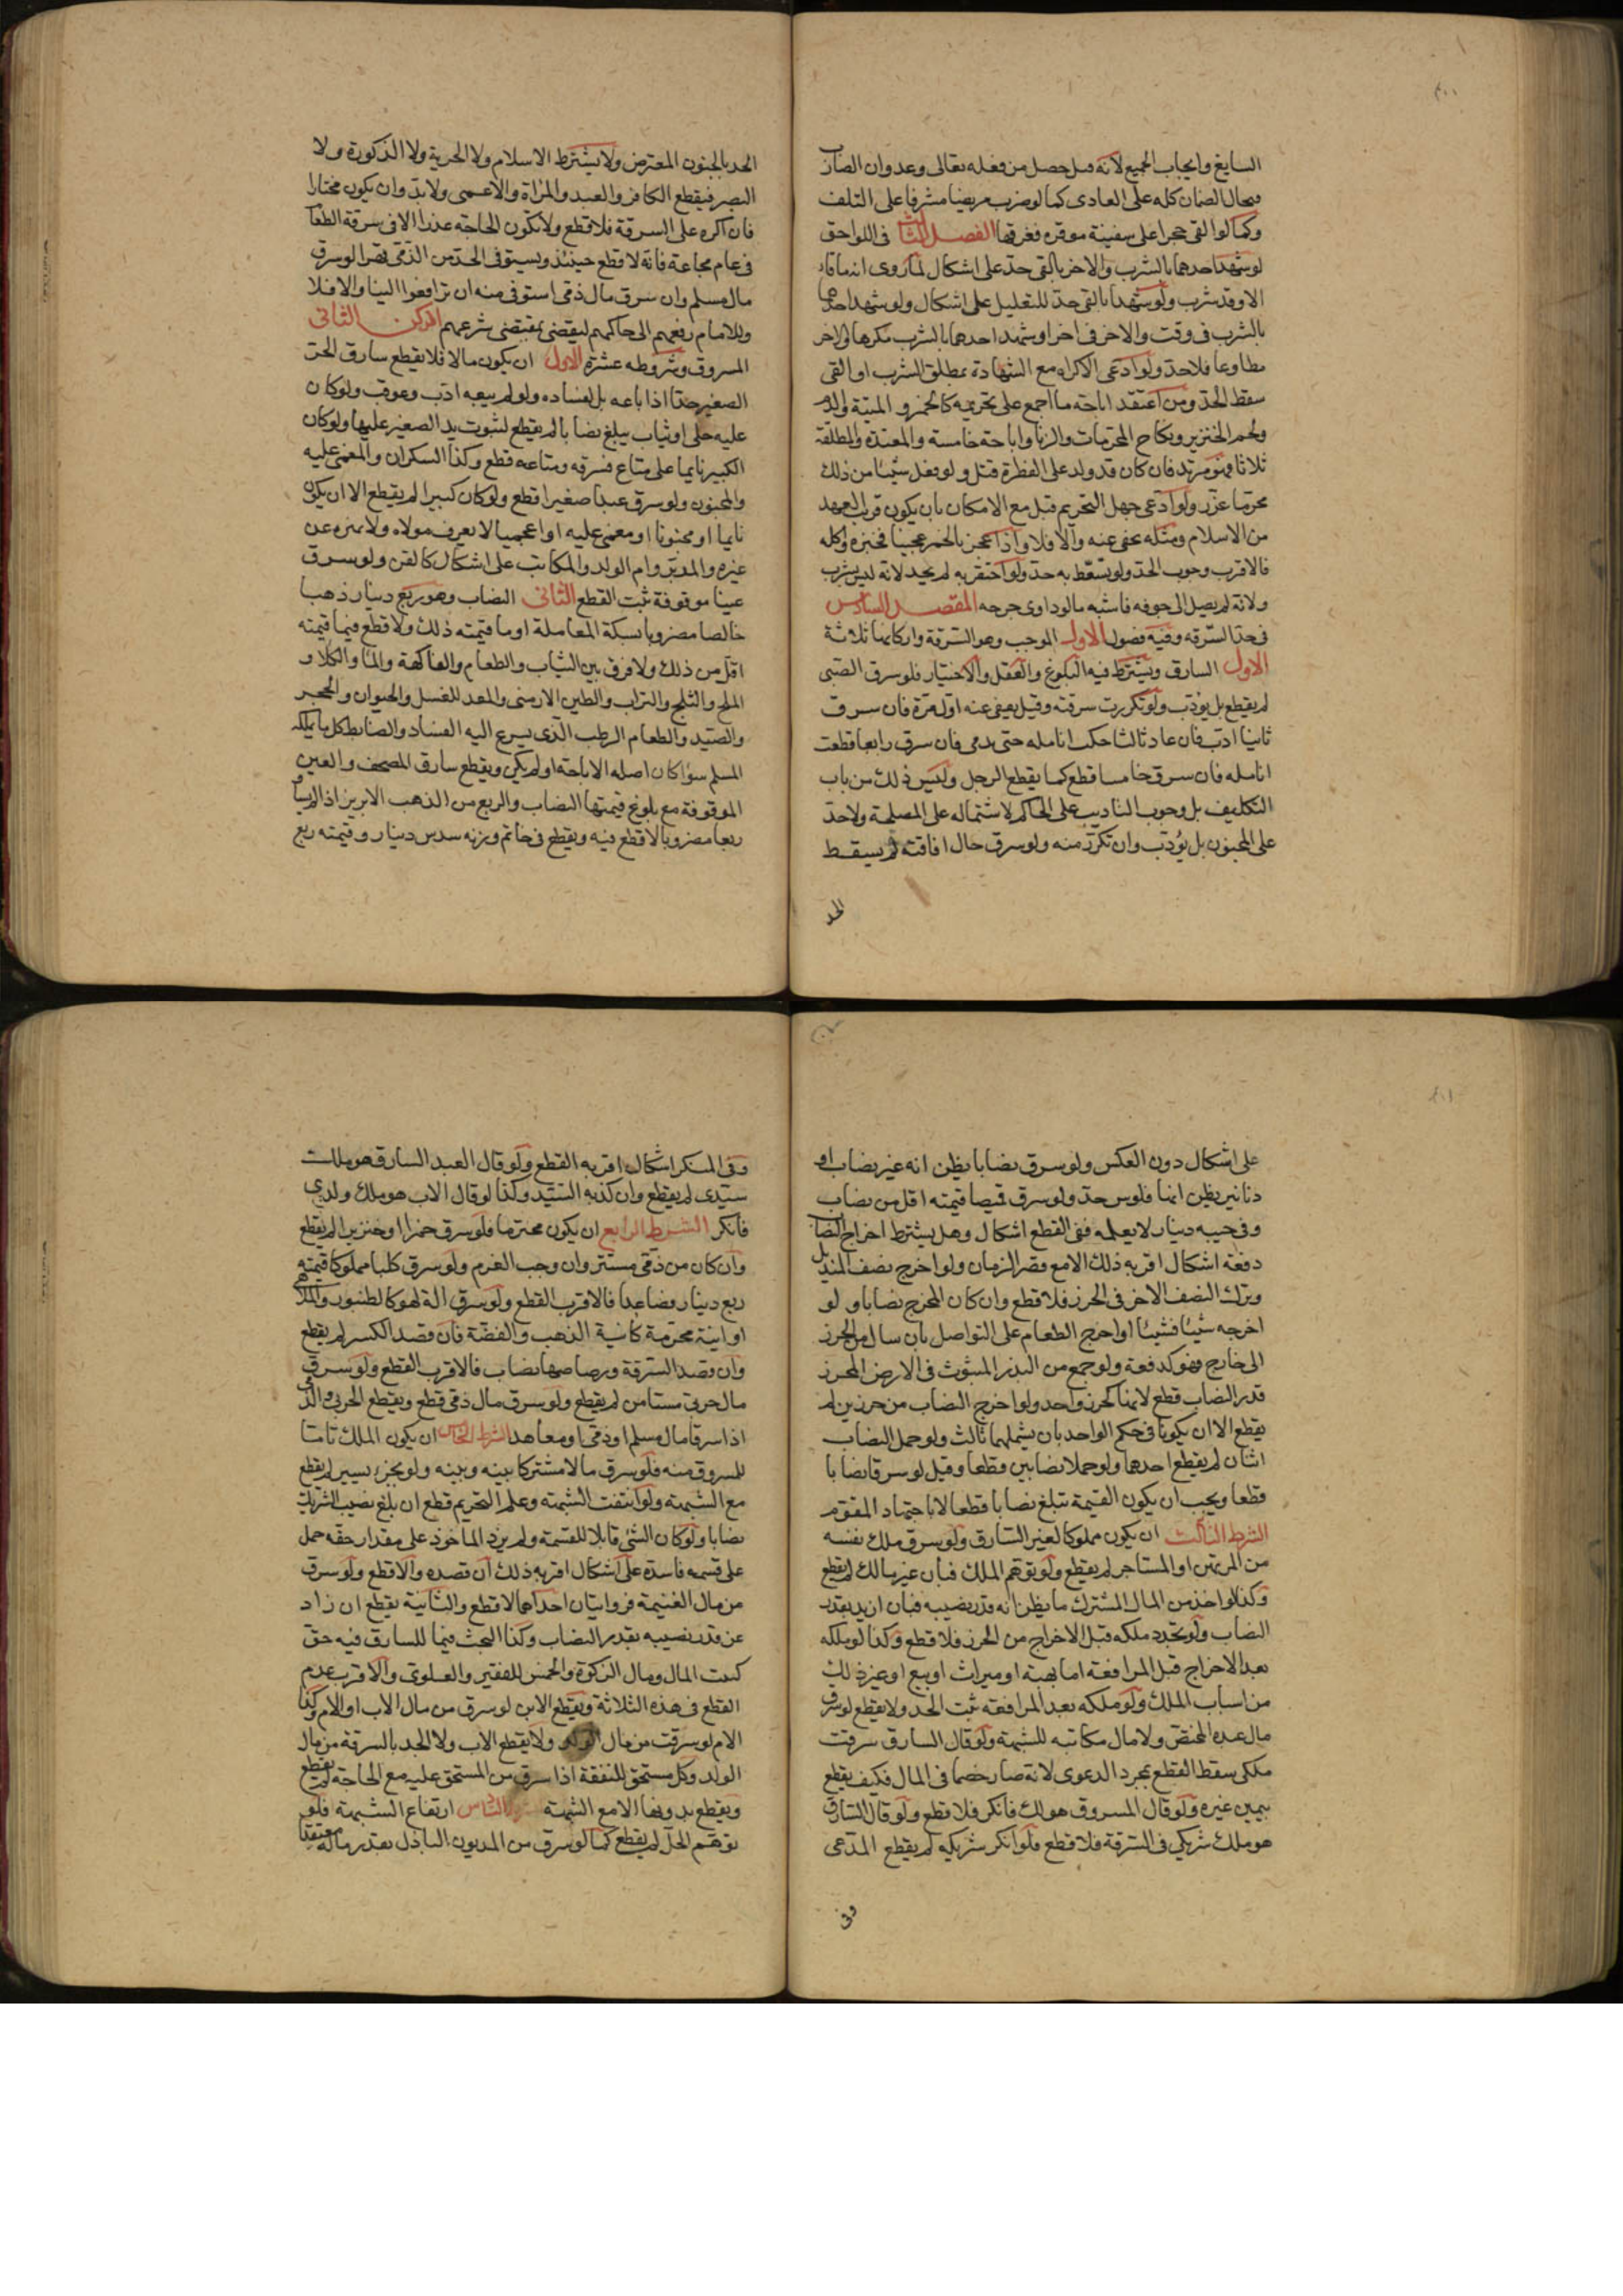 السايغ وايجاب الجميع لانه قتل حصل من فعله تعالى وعدوان الضارب
فيحال الضمان كله على العادى كما لو ضرب مريضا مشرفا على التلف
وكما لو القى حجرا على سفينة موقره فغرقها الفصل الثالث فى اللواحق
لو شهد احدهما بالشرب والاخر بالقى حد على اشكال لما روى انه ما قاء
الا وقد شرب ولو شهدا بالقى حد للتعليل على اشكال ولو شهد احدهما
بالشرب فى وقت والاخر فى اخر او شهد احدهما بالشرب مكرها والاخر
مطاوعا فلا حد ولو ادعى الاكراه مع الشهادة بمطلق الشرب او القى
سقط الحد ومن اعتقد اباحة ما اجمع على تحريمه كالخمر و الميتة والدم
ولحم الخنزير ونكاح المحرمات والزنا واباحة خامسة والمعتدة والمطلقة
ثلاثا فهو مرتد فان كان قد ولد على الفطرة قتل ولو فعل شيئا من ذلك
محرما عزر ولو ادعى جهل التحريم قبل مع الامكان بان يكون قريب العهد
من الاسلام ومثله يخفى عنه والا فلا واذا عجن بالخمر عجينا فخبزه واكله
فالاقرب وجوب الحد ولو تسعط به حد ولو احتقن به لم يحد لانه ليس بشرب
ولانه لم يصل الى جوفه فاشبه ما لو داوى جرحه المقصد السادس
فى حد السرقه وفيه فصول الاول الموجب وهو السرقة واركانها ثلاثة
الاول السارق ويشترط فيه البلوغ والعقل والاختيار فلو سرق الصبى
لم يقطع بل يؤدب ولو تكررت سرقته وقيل يعفى عنه اول مرة فان سرق
ثانيا ادب فان عاد ثالثا حكت انامله حتى تدمى فان سرق رابعا قطعت
انامله فان سرق خامسا قطع كما يقطع الرجل وليس ذلك من باب
التكليف بل وجوب التاديب على الحاكم لاشتماله على المصلحة ولا حد
على المجنون بل يؤدب وان تكرر منه ولو سرق حال افاقته لم يسقط
الحد
الحد بالجنون المعترض ولا يشترط الاسلام ولا الحرية ولا الذكورة ولا
البصر فيقطع الكافر والعبد والمراة والاعمى ولا بد وان يكون مختارا
فان اكره على السرقة فلا قطع ولا تكون الحاجة عذرا الا فى سرقة الطعام
فى عام مجاعة فانه لا قطع حينئذ ويستوفى الحد من الذمى قهرا لو سرق
مال مسلم وان سرق مال ذمى استوفى منه ان ترافعوا الينا والا فلا
وللامام رفعهم الى حاكمهم ليقضى بمقتضى شرعهم الركن الثانى
المسروق وشروطه عشرة الاول ان يكون مالا فلا يقطع سارق الحر
الصغير حدا اذا باعه بل لفساده ولو لم يبعه ادب وعوقب ولو كان
عليه حلى او ثياب يبلغ نصابا لم يقطع لثبوت يد الصغير عليها ولو كان
الكبير نايما على متاع فسرقه ومتاعه قطع وكذا السكران والمغمى عليه
والمجنون ولو سرق عبدا صغيرا قطع ولو كان كبيرا لم يقطع الا ان يكون
نايما او مجنونا او مغمى عليه او اعجميا لا يعرف مولاه ولا يميزه عن
غيره والمدبر وام الولد والمكاتب على اشكال كالقن ولو سرق
عينا موقوفة ثبت القطع الثانى النصاب وهو ربع دينار ذهبا
خالصا مضروبا بسكة المعاملة او ما قيمته ذلك ولا قطع فيما قيمته
اقل من ذلك ولا فرق بين الثياب والطعام والفاكهة والماء والكلاء و
الملح والثلج والتراب والطين الارمنى والمعد للغسل والحيوان والحجر
والصيد والطعام الرطب الذى يسرع اليه الفساد والضابط كل ما يملكه
المسلم سواء كان اصله الاباحة او لم يكن ويقطع سارق المصحف والعين
الموقوفة مع بلوغ قيمتها النصاب والربع من الذهب الابريز اذا لم يساو
ربعا مضروبا لا قطع فيه ويقطع فى خاتم وزنه سدس دينار وقيمته ربع
على اشكال دون العكس ولو سرق نصابا يظن انه غير نصاب او
دنانير يظن انها فلوس حد ولو سرق قميصا قيمته اقل من نصاب
وفى جيبه دينار لا يعلمه ففى القطع اشكال وهل يشترط اخراج النصاب
دفعة اشكال اقربه ذلك الا مع قصر الزمان ولو اخرج نصف المنديل
وترك النصف الاخر فى الحرز فلا قطع وان كان المخرج نصابا و لو
اخرجه شيئا فشيئا او اخرج الطعام على التواصل بان سال من الحرز
الى خارج فهو كدفعة ولو جمع من البذر المبثوث فى الارض المحرز
قدر النصاب قطع لانها كحرز واحد ولو اخرج النصاب من حرزين لم
يقطع الا ان يكونا فى حكم الواحد بان يشملهما ثالث ولو حمل النصاب
اثنان لم يقطع احدهما ولو حملا نصابين قطعا وقيل لو سرقا نصابا
قطعا ويجب ان يكون القيمة تبلغ نصابا قطعا لا باجتهاد المقوم
الشرط الثالث ان يكون مملوكا لغير السارق ولو سرق ملك نفسه
من المرتهن او المستاجر لم يقطع ولو توهم الملك فبان غير مالك لم يقطع
وكذا لو اخذ من المال المشترك ما يظن انه قدر نصيبه فبان ازيد بقدر
النصاب ولو تجدد ملكه قبل الاخراج من الحرز فلا قطع وكذا لو ملكه
بعد الاخراج قبل المرافعة اما بهبة او ميراث او بيع او غير ذلك
من اسباب الملك ولو ملكه بعد المرافعة ثبت الحد ولا يقطع لو سرق
مال عبده المختص ولا مال مكاتبه للشبهة ولو قال السارق سرقت
ملكى سقط القطع بمجرد الدعوى لانه صار خصما فى المال فكيف يقطع
بيمين غيره ولو قال المسروق هو لك فانكر فلا قطع ولو قال السارق
هو ملك شريكى فى السرقة فلا قطع فلو انكر شريكه لم يقطع المدعى
وفى
وفى المنكر اشكال اقربه القطع ولو قال العبد السارق هو ملك
سيدى لم يقطع وان كذبه السيد وكذا لو قال الاب هو ملك ولدى
فانكر الشرط الرابع ان يكون محترما فلو سرق خمرا او خنزيرا لم يقطع
وان كان من ذمى مستتر وان وجب الغرم ولو سرق كلبا مملوكا قيمته
ربع دينار فصاعدا فالاقرب القطع ولو سرق الة لهو كالطنبور والملاهى
او انية محرمة كانية الذهب والفضة فان قصد الكسر لم يقطع
وان قصد السرقة ورصاصها نصاب فالاقرب القطع ولو سرق
مال حربى مستامن لم يقطع ولو سرق مال ذمى قطع ويقطع الحربى والذمى
اذا سرقا مال مسلم او ذمى او معاهد الشرط الخامس ان يكون الملك تاما
للمسروق منه فلو سرق مالا مشتركا بينه وبينه ولو بجزء يسير لم يقطع
مع الشبهة ولو انتفت الشبهة وعلم التحريم قطع ان بلغ نصيب الشريك
نصابا ولو كان الشئ قابلا للقسمة ولم يزد الماخوذ على مقدار حقه حمل
على قسمة فاسدة على اشكال اقربه ذلك ان قصده والا قطع ولو سرق
من مال الغنيمة فروايتان احداهما لا قطع والثانية يقطع ان زاد
عن قدر نصيبه بقدر النصاب وكذا البحث فيما للسارق فيه حق
كبيت المال ومال الزكوة والخمس للفقير والعلوى والاقرب عدم
القطع فى هذه الثلاثة ويقطع الابن لو سرق من مال الاب او الام وكذا
الام لو سرقت من مال الولد ولا يقطع الاب ولا الجد بالسرقة من مال
الولد وكل مستحق للنفقة اذا سرق من المستحق عليه مع الحاجة لم يقطع
ويقطع بدونها الا مع الشبهة السادس ارتفاع الشبهة فلو
توهم الحل لم يقطع كما لو سرق من المديون الباذل بقدر ماله معتقدا